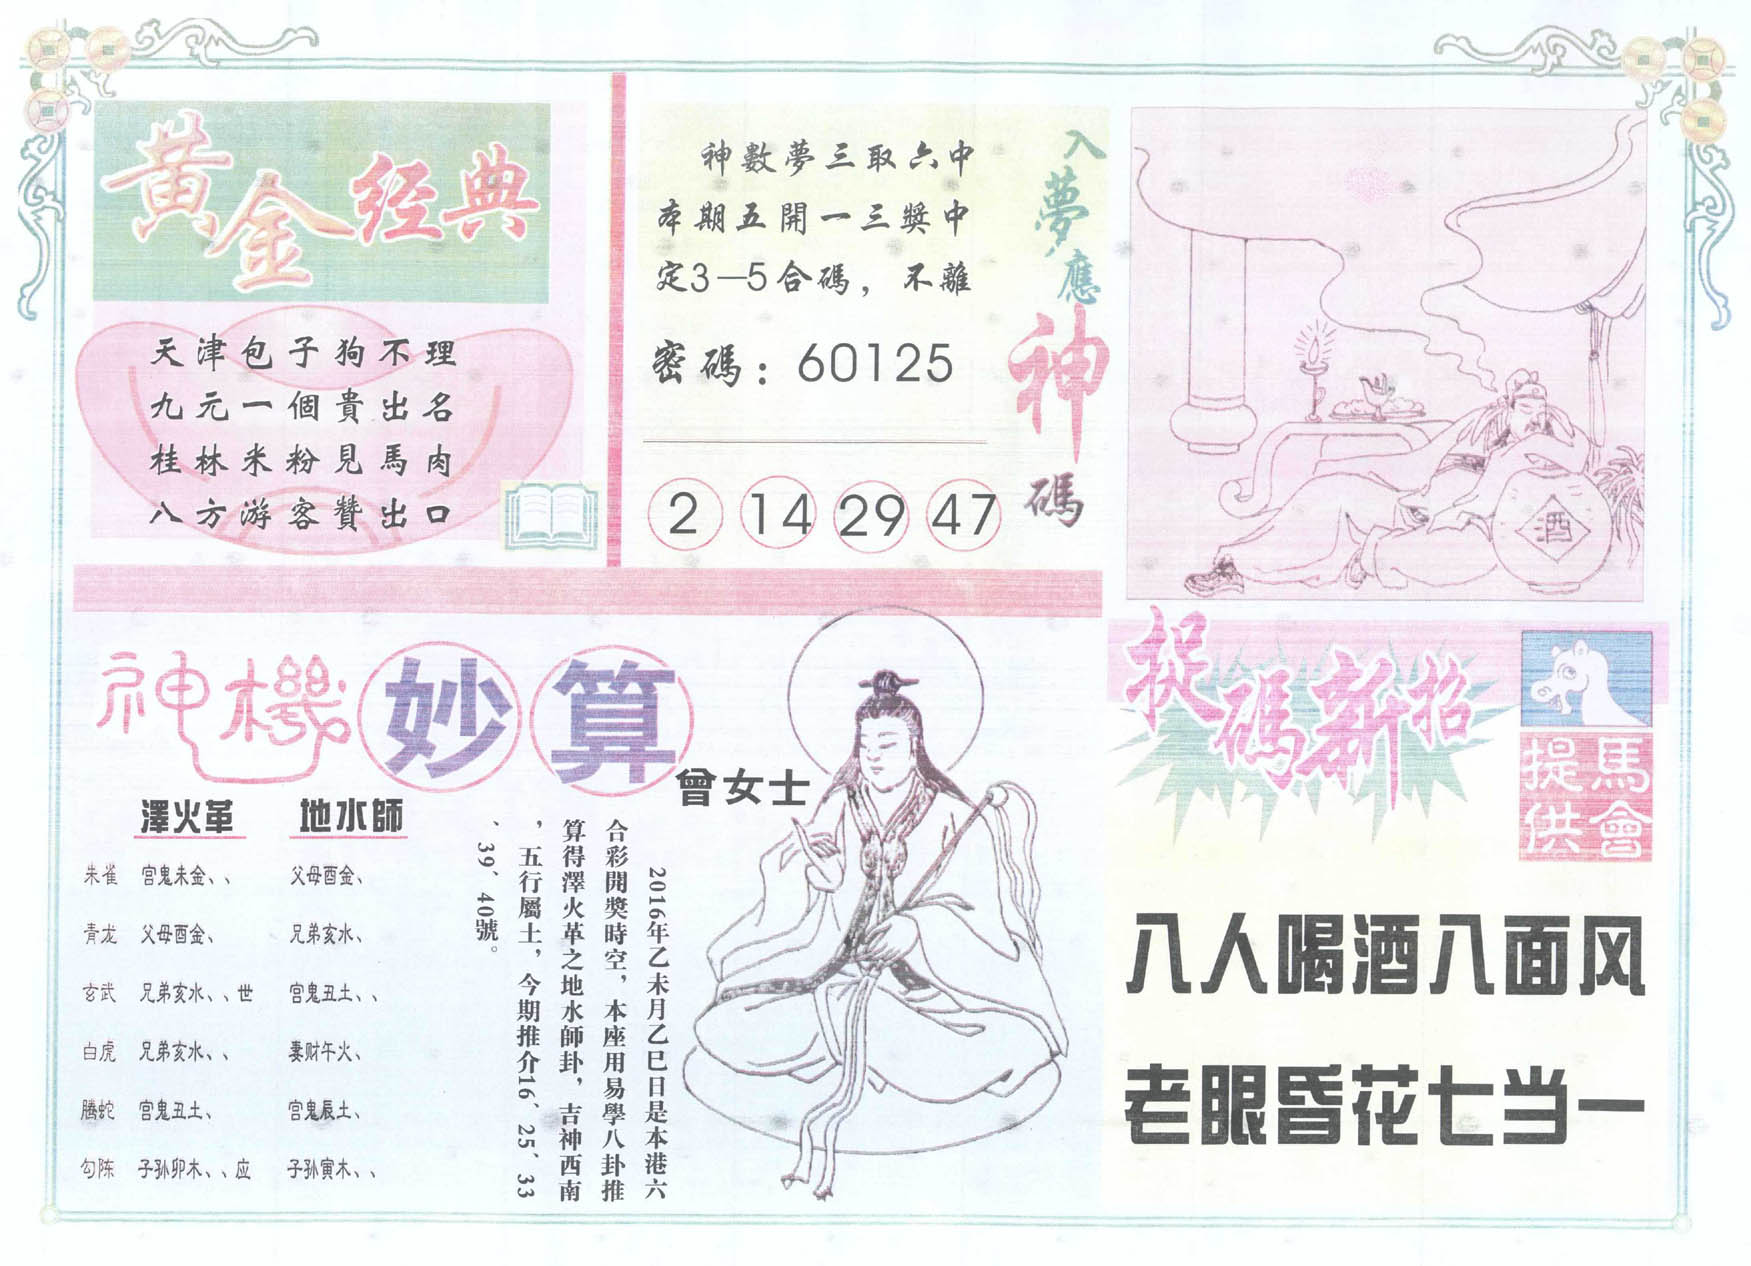 黄金经典
天津包子狗不理
九元一個貴出名
桂林米粉見馬肉
八方游客贊出口
神數夢三取六中
本期五開一三獎中
定3—5合碼，不離
密碼：60125
2 14 29 47
入夢應神碼
酒
神機妙算
曾女士
澤火革 地水師
朱雀 宫鬼未金、、 父母酉金、
青龙 父母酉金、 兄弟亥水、
玄武 兄弟亥水、、世 宫鬼丑土、、
白虎 兄弟亥水、、 妻财午火、
腾蛇 宫鬼丑土、 宫鬼辰土、
勾陈 子孙卯木、、应 子孙寅木、、
2016年乙未月乙巳日是本港六
合彩開獎時空，本座用易學八卦推
算得澤火革之地水師卦，吉神西南
，五行屬土，今期推介16、25、33
、39、40號。
捉碼新招
馬會提供
八人喝酒八面风
老眼昏花七当一